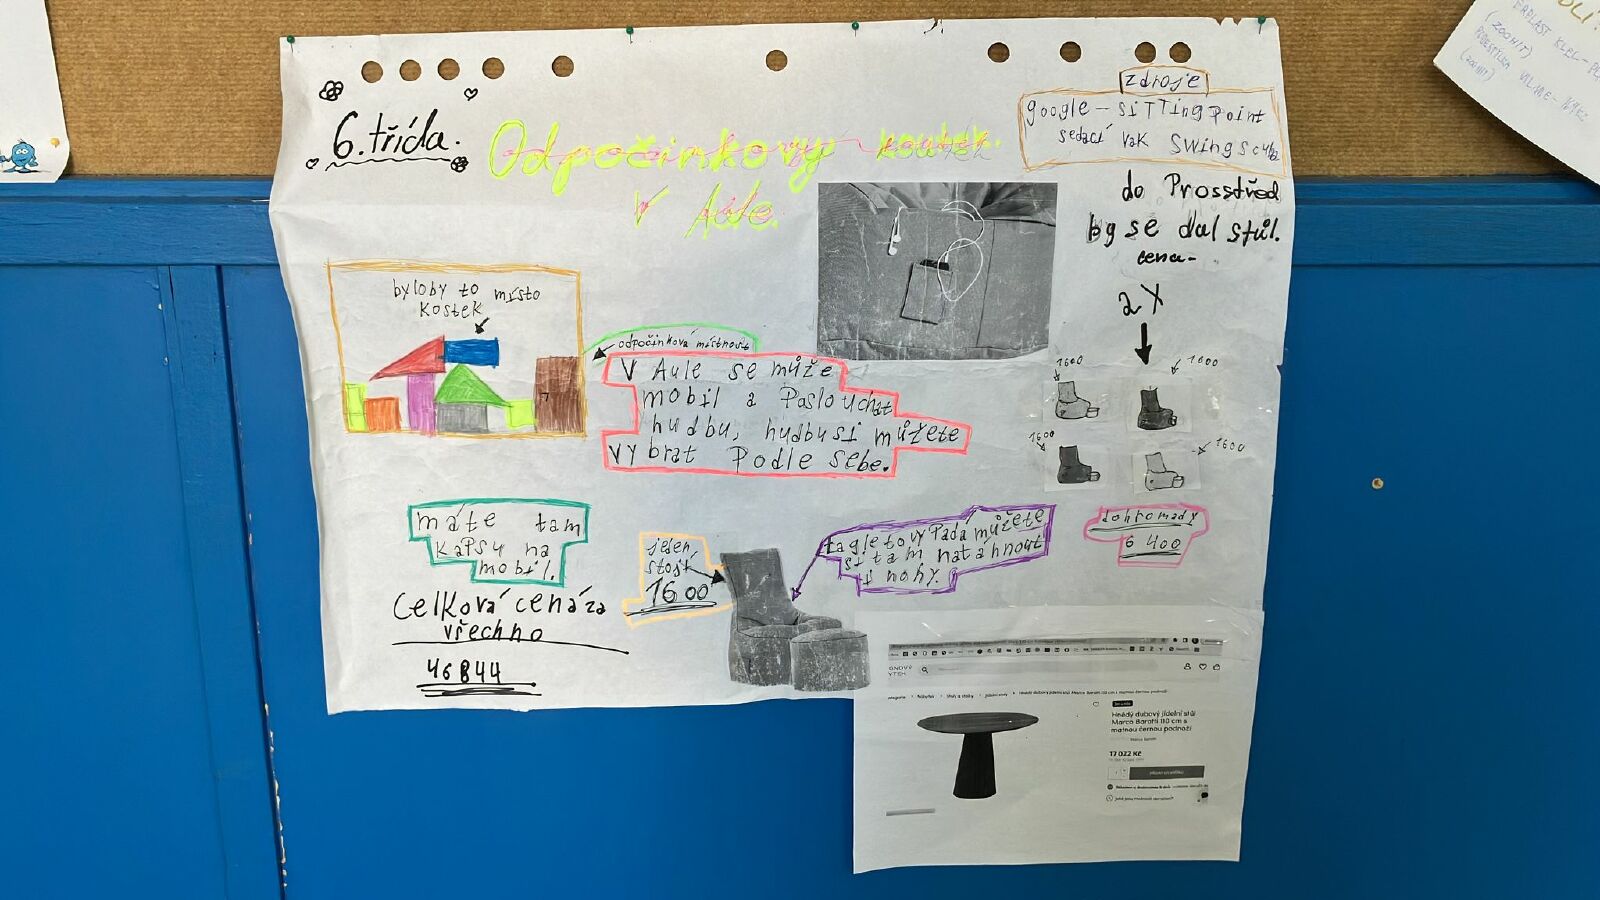 6. třída.
Odpočinkovy koutek.
V Aule.
zdroje
google - sittingpoint
sedací vak swing scuba
do Prosstřed
by se dal stůl.
cena-
2X
1600
1600
1600
1600
dohromady
6 400
byloby to místo
kostek
odpočinková místnost
V Aule se může
mobil a Paslouchat
hudbu, hudbu si můžete
vybrat Podle sebe.
máte tam
kapsu na
mobil.
Celková cena za
všechno
46844
jeden
stojí
1600
tagletový Padá můžete
si tam natáhnout
i nohy.
Hnědý dubový jídelní stůl
Marco Barotti 110 cm s
matnou černou podnoží
17 022 Kč